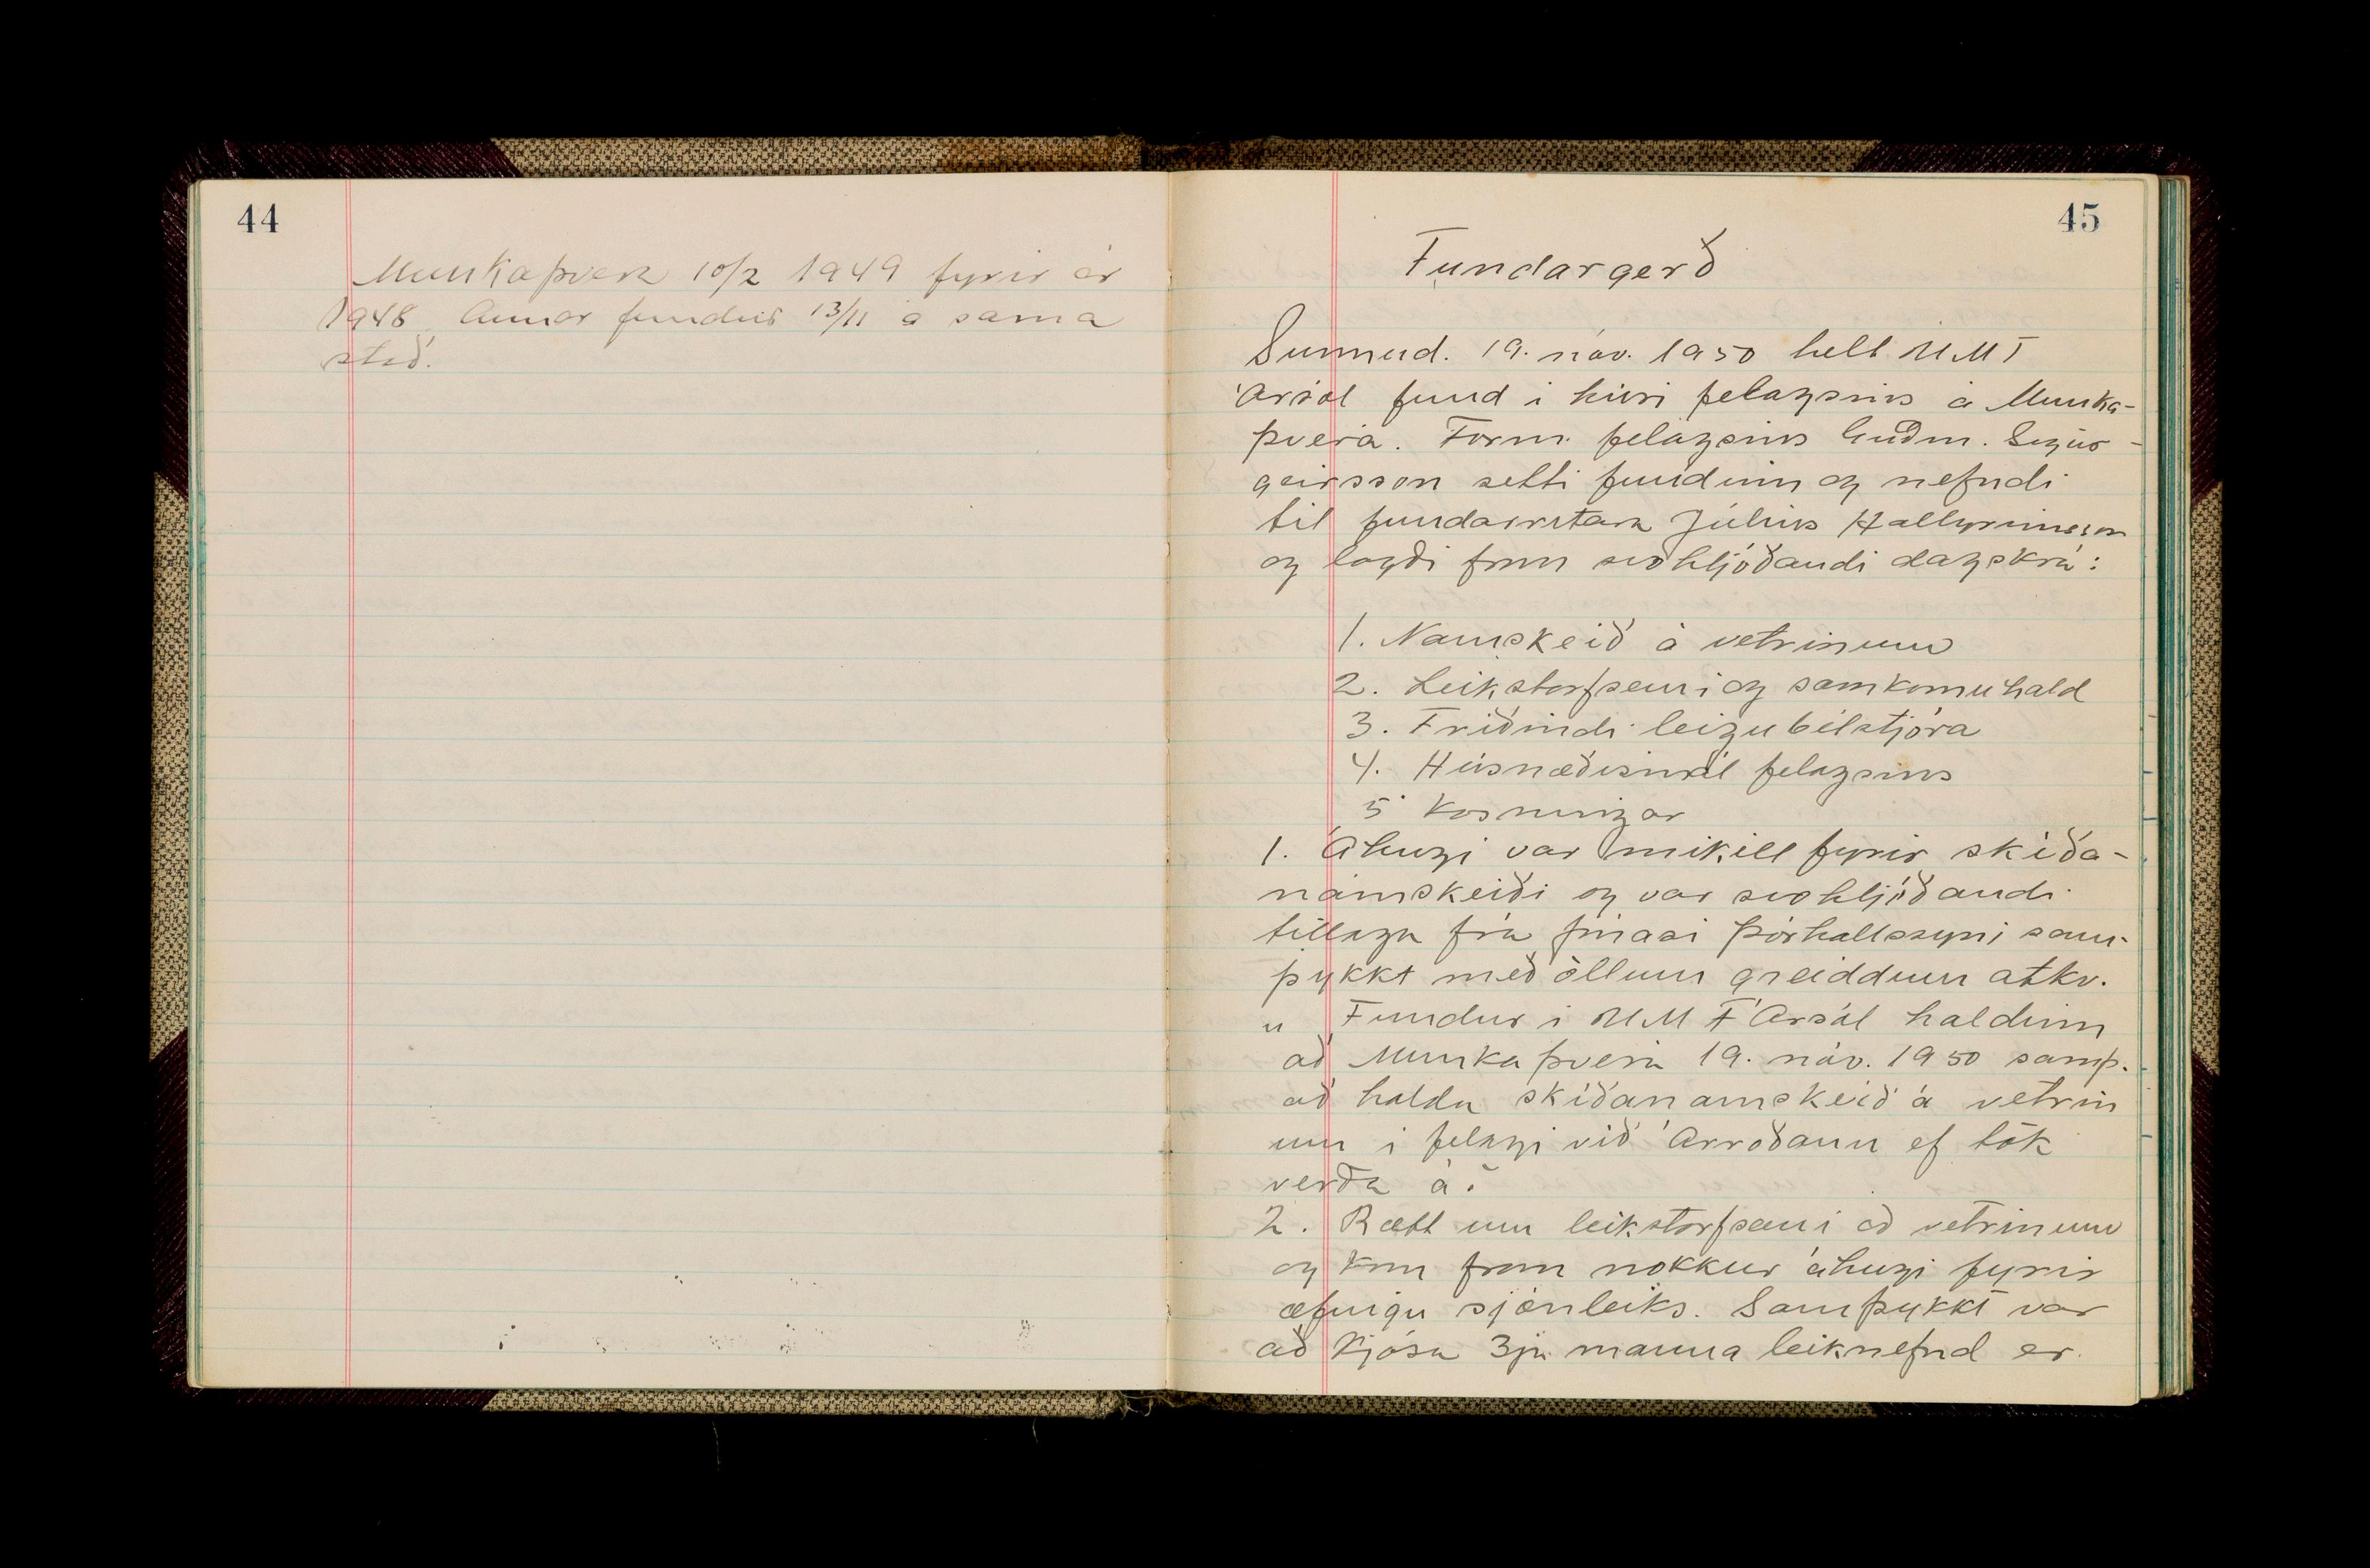 44
Munkaþverá 10/2 1949 fyrir ár
1948 Annar fundur 13/11 á sama
stað.
45
Fundargerð
Sunnud. 19. nóv. 1950 helt UMF
Ársól fund i húsi felagsins á Munka-
þverá. Form. felagsins Guðm. Sigur-
geirsson setti fundinn og nefndi
til fundarritara Július Hallgrimsson
og lagði fram svohljóðandi dagskrá:
1. Namskeið á vetrinum
2. Leikstarfsemi og samkomuhald
3. Friðindi leigubílstjóra
4. Húsnæðismál felagsins
5 Kosningar
1. Áhugi var mikill fyrir skíða-
námskeiði og var svohljóðandi
tillaga frá Þórhallssyni sam-
þykkt með öllum greiddum atkv.
„ Fundur i UMF Ársól haldinn
að Munkaþverá 19. nóv. 1950 samþ.
að halda skíðanamskeið á vetrin
um i felagi við Arroðann ef tök
verða á."
2. Rætt um leikstarfsemi að vetrinum
og kom fram nokkur áhugi fyrir
æfingu sjónleiks. Samþykkt var
að kjósa 3ja manna leiknefnd er